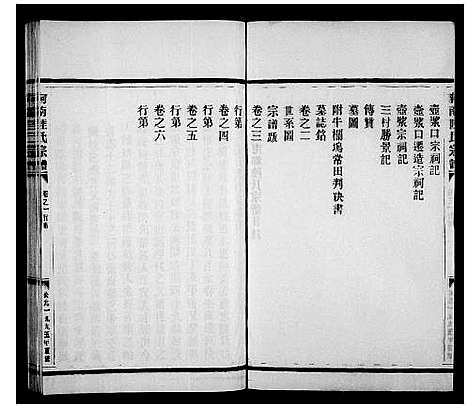 壺漿口宗祠記
壺漿口遷造宗祠記
壺漿宗祠記
三村勝景記
傳贊
墓圖
附牛欄塢常田判決書
墓誌銘
卷之二
世系圖
宗譜跋
卷之三
行第
卷之四
行第
卷之五
行第
卷之六
行第
河南陸氏宗譜
卷之一
公元一九九五年重鐫